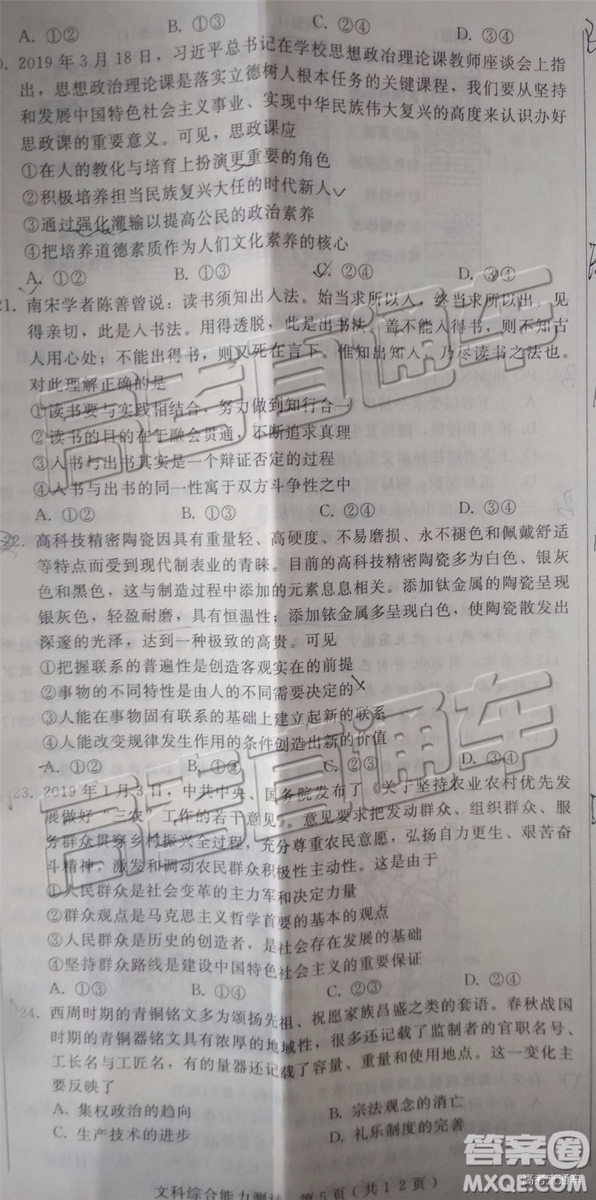 A. ①② B. ①③ C. ②④ D. ③④
0. 2019 年 3 月 18 日，习近平总书记在学校思想政治理论课教师座谈会上指
出，思想政治理论课是落实立德树人根本任务的关键课程，我们要从坚持
和发展中国特色社会主义事业、实现中华民族伟大复兴的高度来认识办好
思政课的重要意义。可见，思政课应
①在人的教化与培育上扮演更重要的角色
②积极培养担当民族复兴大任的时代新人
③通过强化灌输以提高公民的政治素养
④把培养道德素质作为人们文化素养的核心
A. ①② B. ①③ C. ②④ D. ③④
21. 南宋学者陈善曾说：读书须知出入法。始当求所以入，终当求所以出。见
得亲切，此是入书法。用得透脱，此是出书法。盖不能入得书，则不知古
人用心处；不能出得书，则又死在言下。惟知出知入，乃尽读书之法也。
对此理解正确的是
①读书要与实践相结合，努力做到知行合一
②读书的目的在于融会贯通，不断追求真理
③入书与出书其实是一个辩证否定的过程
④入书与出书的同一性寓于双方斗争性之中
A. ①② B. ①③ C. ②④ D. ③④
22. 高科技精密陶瓷因具有重量轻、高硬度、不易磨损、永不褪色和佩戴舒适
等特点而受到现代制表业的青睐。目前的高科技精密陶瓷多为白色、银灰
色和黑色，这与制造过程中添加的元素息息相关。添加钛金属的陶瓷呈现
银灰色，轻盈耐磨，具有恒温性；添加铱金属多呈现白色，使陶瓷散发出
深邃的光泽，达到一种极致的高贵。可见
①把握联系的普遍性是创造客观实在的前提
②事物的不同特性是由人的不同需要决定的
③人能在事物固有联系的基础上建立起新的联系
④人能改变规律发生作用的条件创造出新的价值
A. ①② B. ①③ C. ②④ D. ③④
23. 2019 年 1 月 3 日，中共中央、国务院发布了《关于坚持农业农村优先发
展做好“三农”工作的若干意见》。意见要求把发动群众、组织群众、服
务群众贯穿乡村振兴全过程，充分尊重农民意愿，弘扬自力更生、艰苦奋
斗精神，激发和调动农民群众积极性主动性。这是由于
①人民群众是社会变革的主力军和决定力量
②群众观点是马克思主义哲学首要的基本的观点
③人民群众是历史的创造者，是社会存在发展的基础
④坚持群众路线是建设中国特色社会主义的重要保证
A. ①③ B. ①④ C. ②③ D. ②④
24. 西周时期的青铜铭文多为颂扬先祖、祝愿家族昌盛之类的套语。春秋战国
时期的青铜器铭文具有浓厚的地域性，很多还记载了监制者的官职名号、
工长名与工匠名，有的量器还记载了容量、重量和使用地点。这一变化主
要反映了
A. 集权政治的趋向 B. 宗法观念的消亡
C. 生产技术的进步 D. 礼乐制度的完善
文科综合能力测试 第5页（共12页）
高考直通车
高考直通车
答案圈
MXQE.COM